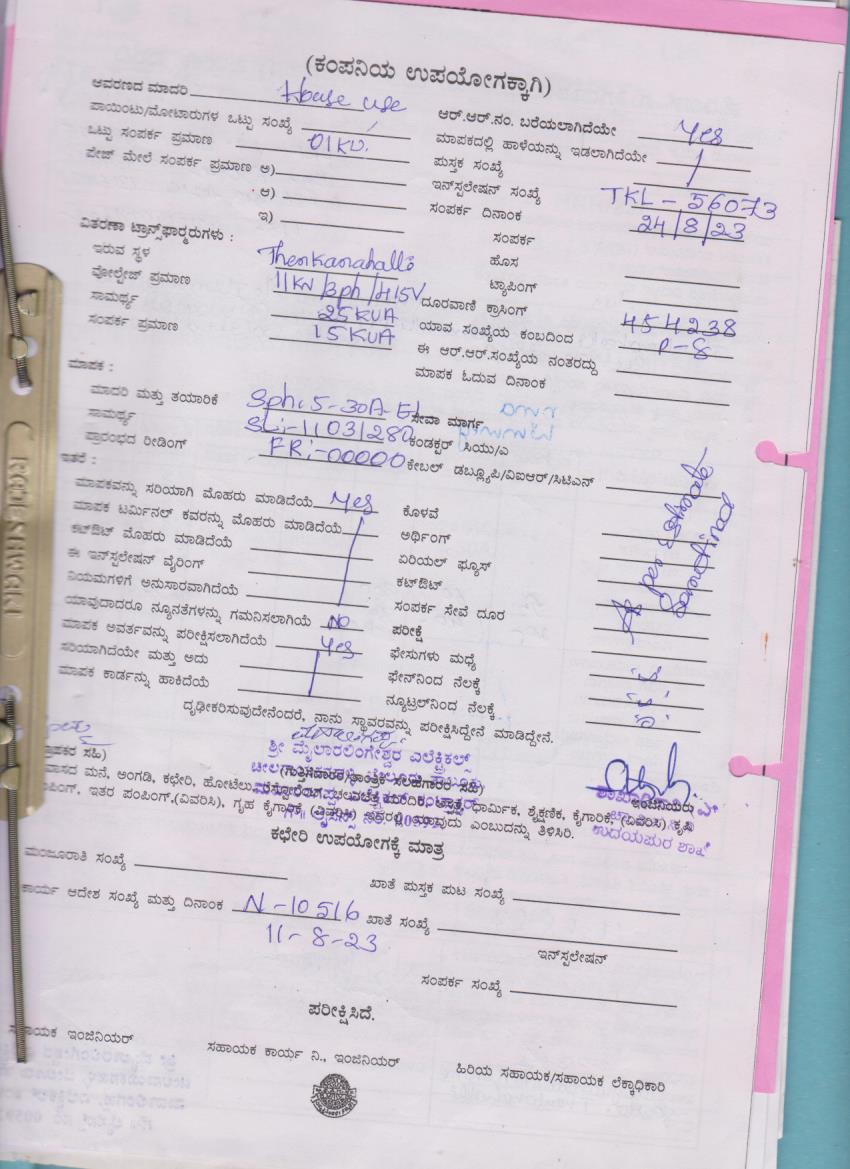 (ಕಂಪನಿಯ ಉಪಯೋಗಕ್ಕಾಗಿ)
ಆವರಣದ ಮಾದರಿ House use
ಪಾಯಿಂಟು/ಮೋಟಾರುಗಳ ಒಟ್ಟು ಸಂಖ್ಯೆ
ಒಟ್ಟು ಸಂಪರ್ಕ ಪ್ರಮಾಣ 01KW
ಪೇಜ್ ಮೇಲೆ ಸಂಪರ್ಕ ಪ್ರಮಾಣ ಅ)
ಆ)
ಇ)
ಆರ್.ಆರ್.ನಂ. ಬರೆಯಲಾಗಿದೆಯೇ Yes
ಮಾಪಕದಲ್ಲಿ ಹಾಳೆಯನ್ನು ಇಡಲಾಗಿದೆಯೇ
ಪುಸ್ತಕ ಸಂಖ್ಯೆ
ಇನ್‌ಸ್ಟಲೇಷನ್ ಸಂಖ್ಯೆ TKL - 56073
ಸಂಪರ್ಕ ದಿನಾಂಕ 24/8/23
ವಿತರಣಾ ಟ್ರಾನ್ಸ್‌ಫಾರ್ಮರುಗಳು :
ಇರುವ ಸ್ಥಳ
ವೋಲ್ಟೇಜ್ ಪ್ರಮಾಣ 11KV/3ph/415V
ಸಾಮರ್ಥ್ಯ 25KVA
ಸಂಪರ್ಕ ಪ್ರಮಾಣ 15KVA
ಸಂಪರ್ಕ
ಹೊಸ
ಟ್ಯಾಪಿಂಗ್
ದೂರವಾಣಿ ಕ್ರಾಸಿಂಗ್
ಯಾವ ಸಂಖ್ಯೆಯ ಕಂಬದಿಂದ 454238
P-8
ಈ ಆರ್.ಆರ್.ಸಂಖ್ಯೆಯ ನಂತರದ್ದು
ಮಾಪಕ ಓದುವ ದಿನಾಂಕ
ಮಾಪಕ :
ಮಾದರಿ ಮತ್ತು ತಯಾರಿಕೆ Sph: 5-30A-El
ಸಾಮರ್ಥ್ಯ SL:-11031280
ಪ್ರಾರಂಭದ ರೀಡಿಂಗ್ FR:-00000
ಸೇವಾ ಮಾರ್ಗ
ಕಂಡಕ್ಟರ್ ಸಿಯು/ಎ
ಕೇಬಲ್ ಡಬ್ಲ್ಯೂಪಿ/ವಿಐಆರ್/ಸಿಟಿಎಸ್
ಇತರೆ :
ಮಾಪಕವನ್ನು ಸರಿಯಾಗಿ ಮೊಹರು ಮಾಡಿದೆಯೆ Yes
ಮಾಪಕ ಟರ್ಮಿನಲ್ ಕವರನ್ನು ಮೊಹರು ಮಾಡಿದೆಯೆ
ಕಟ್‌ಔಟ್ ಮೊಹರು ಮಾಡಿದೆಯೆ
ಈ ಇನ್‌ಸ್ಟಲೇಷನ್ ವೈರಿಂಗ್
ನಿಯಮಗಳಿಗೆ ಅನುಸಾರವಾಗಿದೆಯೆ
ಯಾವುದಾದರೂ ನ್ಯೂನತೆಗಳನ್ನು ಗಮನಿಸಲಾಗಿಯೆ NO
ಮಾಪಕ ಅವರ್ತವನ್ನು ಪರೀಕ್ಷಿಸಲಾಗಿದೆಯೆ Yes
ಸರಿಯಾಗಿದೆಯೇ ಮತ್ತು ಅದು
ಮಾಪಕ ಕಾರ್ಡನ್ನು ಹಾಕಿದೆಯೆ
ಕೊಳವೆ
ಅರ್ಥಿಂಗ್
ಏರಿಯಲ್ ಫ್ಯೂಸ್
ಕಟ್‌ಔಟ್
ಸಂಪರ್ಕ ಸೇವೆ ದೂರ
ಪರೀಕ್ಷೆ
ಫೇಸುಗಳು ಮಧ್ಯೆ
ಫೇಸ್‌ನಿಂದ ನೆಲಕ್ಕೆ
ನ್ಯೂಟ್ರಲ್‌ನಿಂದ ನೆಲಕ್ಕೆ
ದೃಢೀಕರಿಸುವುದೇನೆಂದರೆ, ನಾನು ಸ್ಥಾವರವನ್ನು ಪರೀಕ್ಷಿಸಿದ್ದೇನೆ ಮಾಡಿದ್ದೇನೆ.
ಶ್ರೀ ಮೈಲಾರಲಿಂಗೇಶ್ವರ ಎಲೆಕ್ಟ್ರಿಕಲ್ಸ್
ಸಹಿ)
ಇಂಜಿನಿಯರು
ವಾಸದ ಮನೆ, ಅಂಗಡಿ, ಕಛೇರಿ, ಹೋಟೆಲು, ಧಾರ್ಮಿಕ, ಶೈಕ್ಷಣಿಕ, ಕೈಗಾರಿಕೆ, (ವಿವರಿಸಿ) ಕೃಷಿ
ಇತರ ಪಂಪಿಂಗ್,(ವಿವರಿಸಿ), ಗೃಹ ಕೈಗಾರಿಕೆ (ವಿವರಿಸಿ) ಇದರಲ್ಲಿ ಯಾವುದು ಎಂಬುದನ್ನು ತಿಳಿಸಿರಿ.
ಉದಯಪುರ ಶಾಖೆ
ಕಛೇರಿ ಉಪಯೋಗಕ್ಕೆ ಮಾತ್ರ
ಮಂಜೂರಾತಿ ಸಂಖ್ಯೆ
ಖಾತೆ ಪುಸ್ತಕ ಪುಟ ಸಂಖ್ಯೆ
ಕಾರ್ಯ ಆದೇಶ ಸಂಖ್ಯೆ ಮತ್ತು ದಿನಾಂಕ N-10516 ಖಾತೆ ಸಂಖ್ಯೆ
11-8-23
ಇನ್‌ಸ್ಟಲೇಷನ್
ಸಂಪರ್ಕ ಸಂಖ್ಯೆ
ಪರೀಕ್ಷಿಸಿದೆ.
ಸಹಾಯಕ ಇಂಜಿನಿಯರ್
ಸಹಾಯಕ ಕಾರ್ಯ ನಿ., ಇಂಜಿನಿಯರ್
ಹಿರಿಯ ಸಹಾಯಕ/ಸಹಾಯಕ ಲೆಕ್ಕಾಧಿಕಾರಿ